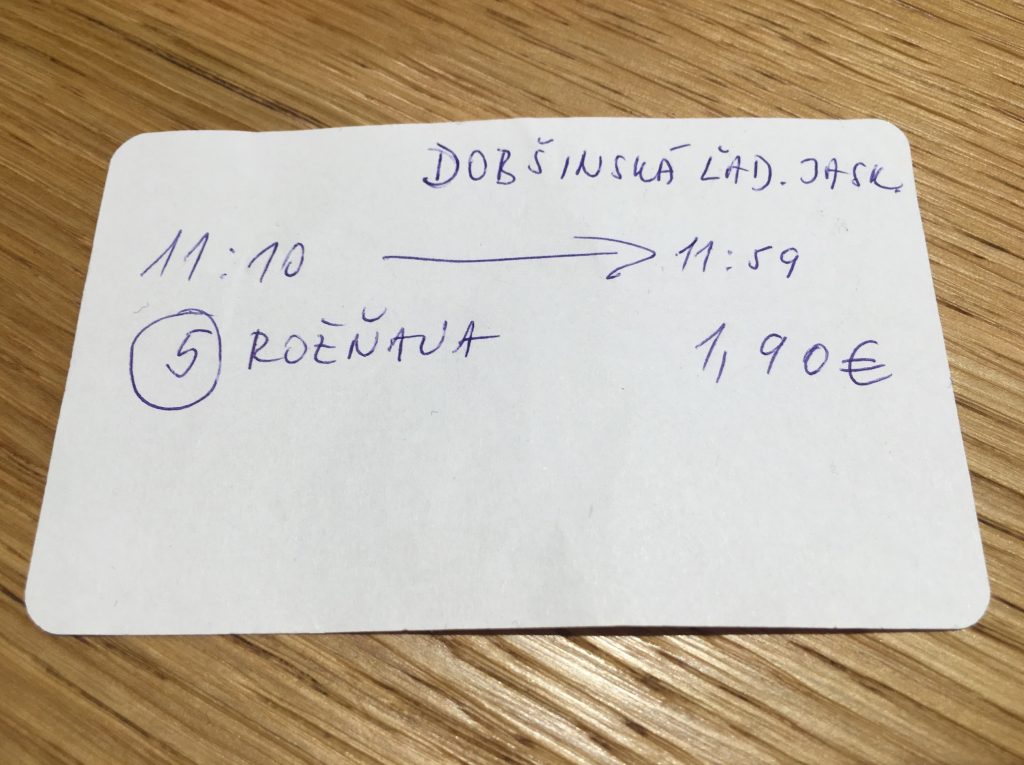 DOBŠINSKÁ ĽAD. JASK.
11:10 → 11:59
5 ROŽŇAVA 1,90€